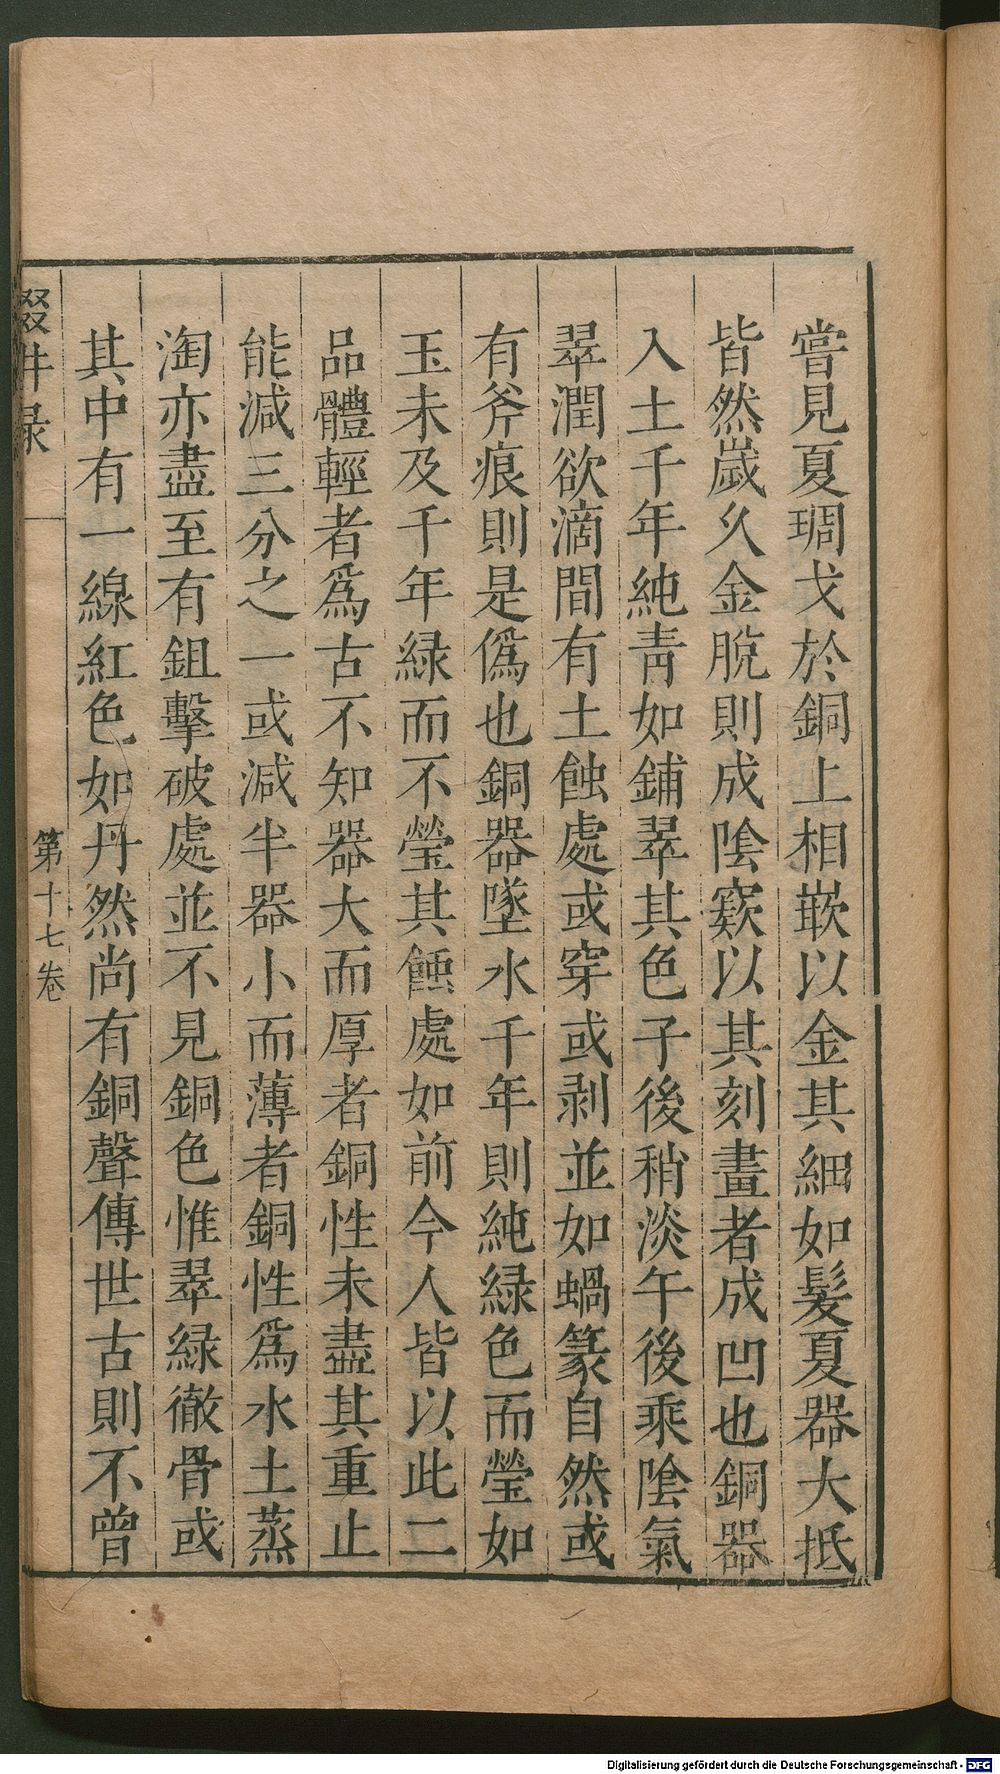 嘗見夏琱戈於銅上相嵌以金其細如髮夏器大抵
皆然歲久金脫則成陰竅以其刻畫者成凹也銅器
入土千年純青如鋪翠其色子後稍淡午後乘陰氣
翠潤欲滴間有土蝕處或穿或剥並如蝸篆自然或
有斧痕則是僞也銅器墜水千年則純綠色而瑩如
玉未及千年綠而不瑩其蝕處如前今人皆以此二
品體輕者爲古不知器大而厚者銅性未盡其重止
能減三分之一或減半器小而薄者銅性爲水土蒸
淘亦盡至有鉏擊破處並不見銅色惟翠綠徹骨或
其中有一線紅色如丹然尚有銅聲傳世古則不曾
輟畊录
第十七卷
Digitalisierung gefördert durch die Deutsche Forschungsgemeinschaft - DFG